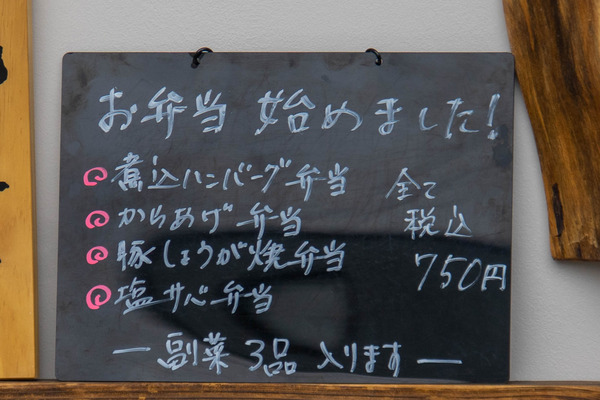 お弁当 始めました!
煮込ハンバーグ弁当
からあげ弁当
豚しょうが焼弁当
塩サバ弁当
全て
税込
750円
ー副菜3品入りますー